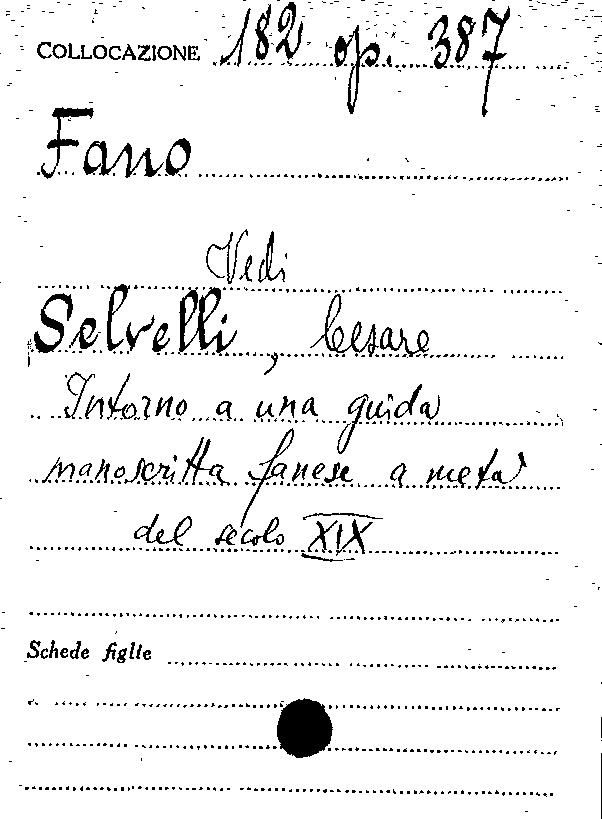 COLLOCAZIONE 182 op. 387
Fano
Vedi
Selvelli, Cesare
Intorno a una guida
manoscritta fanese a metà
del secolo XIX
Schede figlie